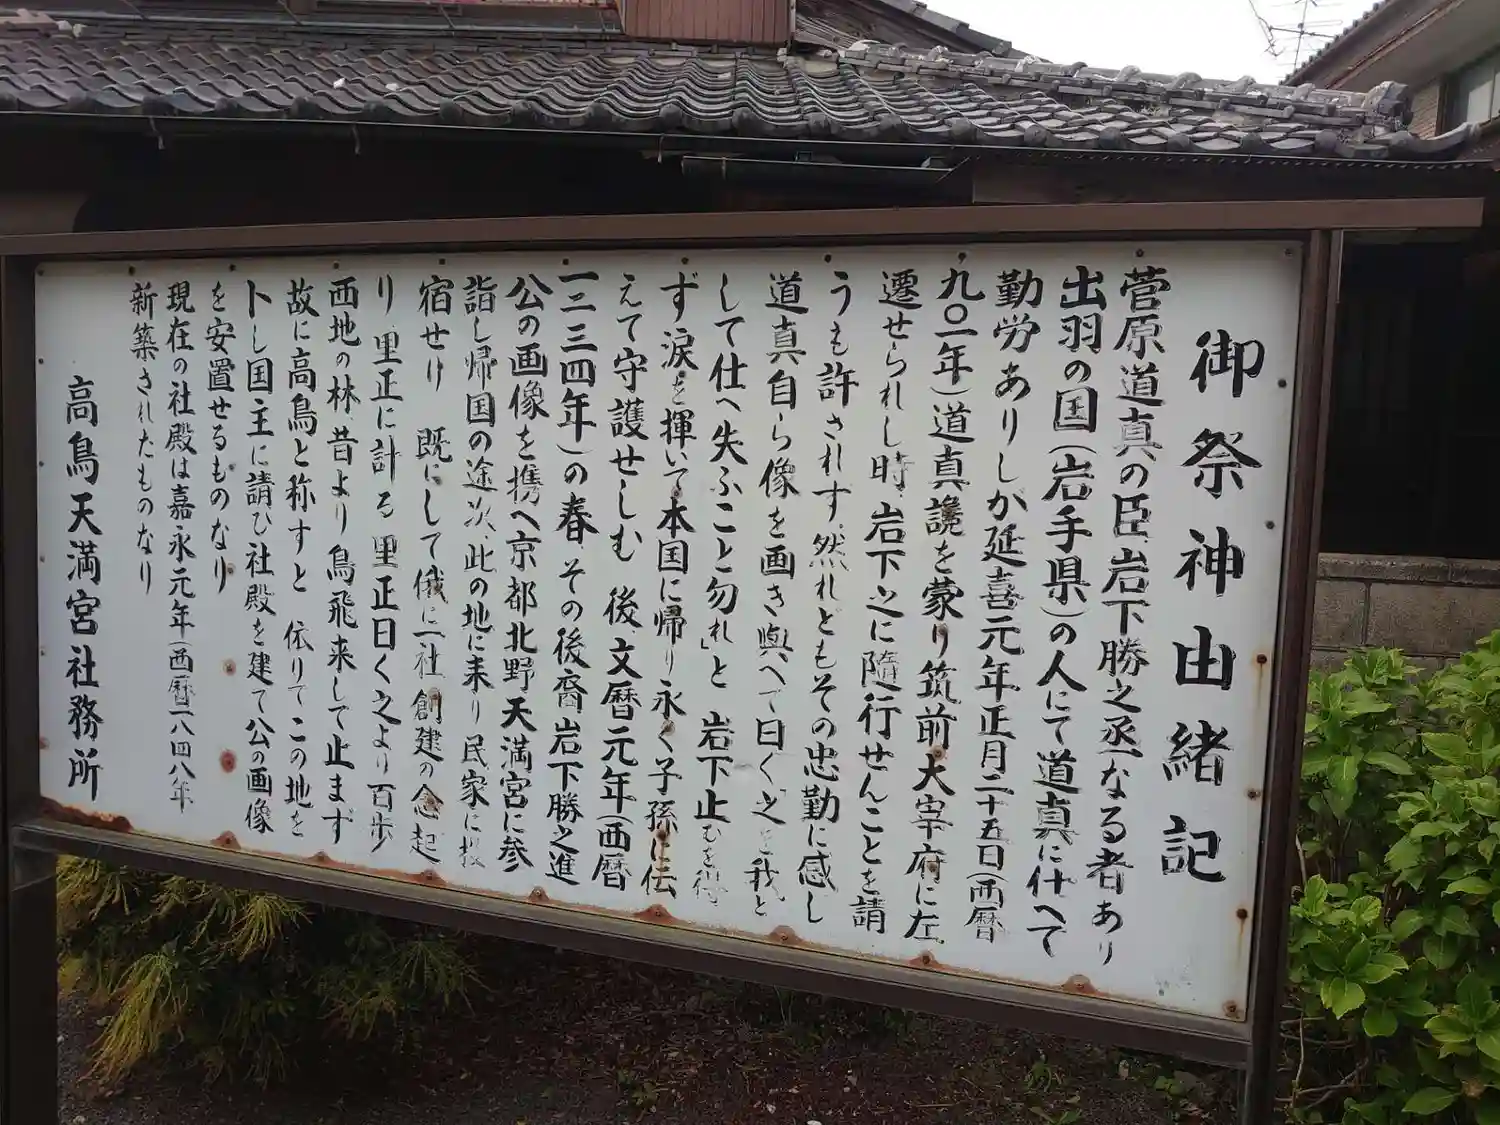 御祭神由緒記
菅原道真の臣岩下勝之丞なる者あり
出羽の国(岩手県)の人にて道真に仕へて
勤労ありしが延喜元年正月二十五日(西暦
九〇一年)道真讒を蒙り筑前大宰府に左
遷せられし時岩下之に隨行せんことを請
うも許されず、然れどもその忠勤に感し
道真自ら像を画き與へて曰く之を我と
して仕へ失ふこと勿れ」と 岩下止むを得
ず涙を揮いて本国に帰り永く子孫に伝
えて守護せしむ 後、文暦元年(西暦
一二三四年)の春、その後裔岩下勝之進
公の画像を携へ京都北野天満宮に参
詣し帰国の途次、此の地に来り民家に投
宿せり 既にして俄に一社創建の念起
り里正に計る里正曰く之より百歩
西地の林、昔より鳥飛来して止まず
故に高鳥と称すと 依りてこの地を
卜し国主に請ひ社殿を建て公の画像
を安置せるものなり
現在の社殿は嘉永元年(西暦一八四八年
新築されたものなり
高鳥天満宮社務所